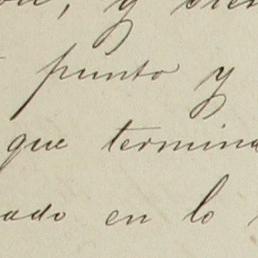 , y
punto y
que termina
ado en lo